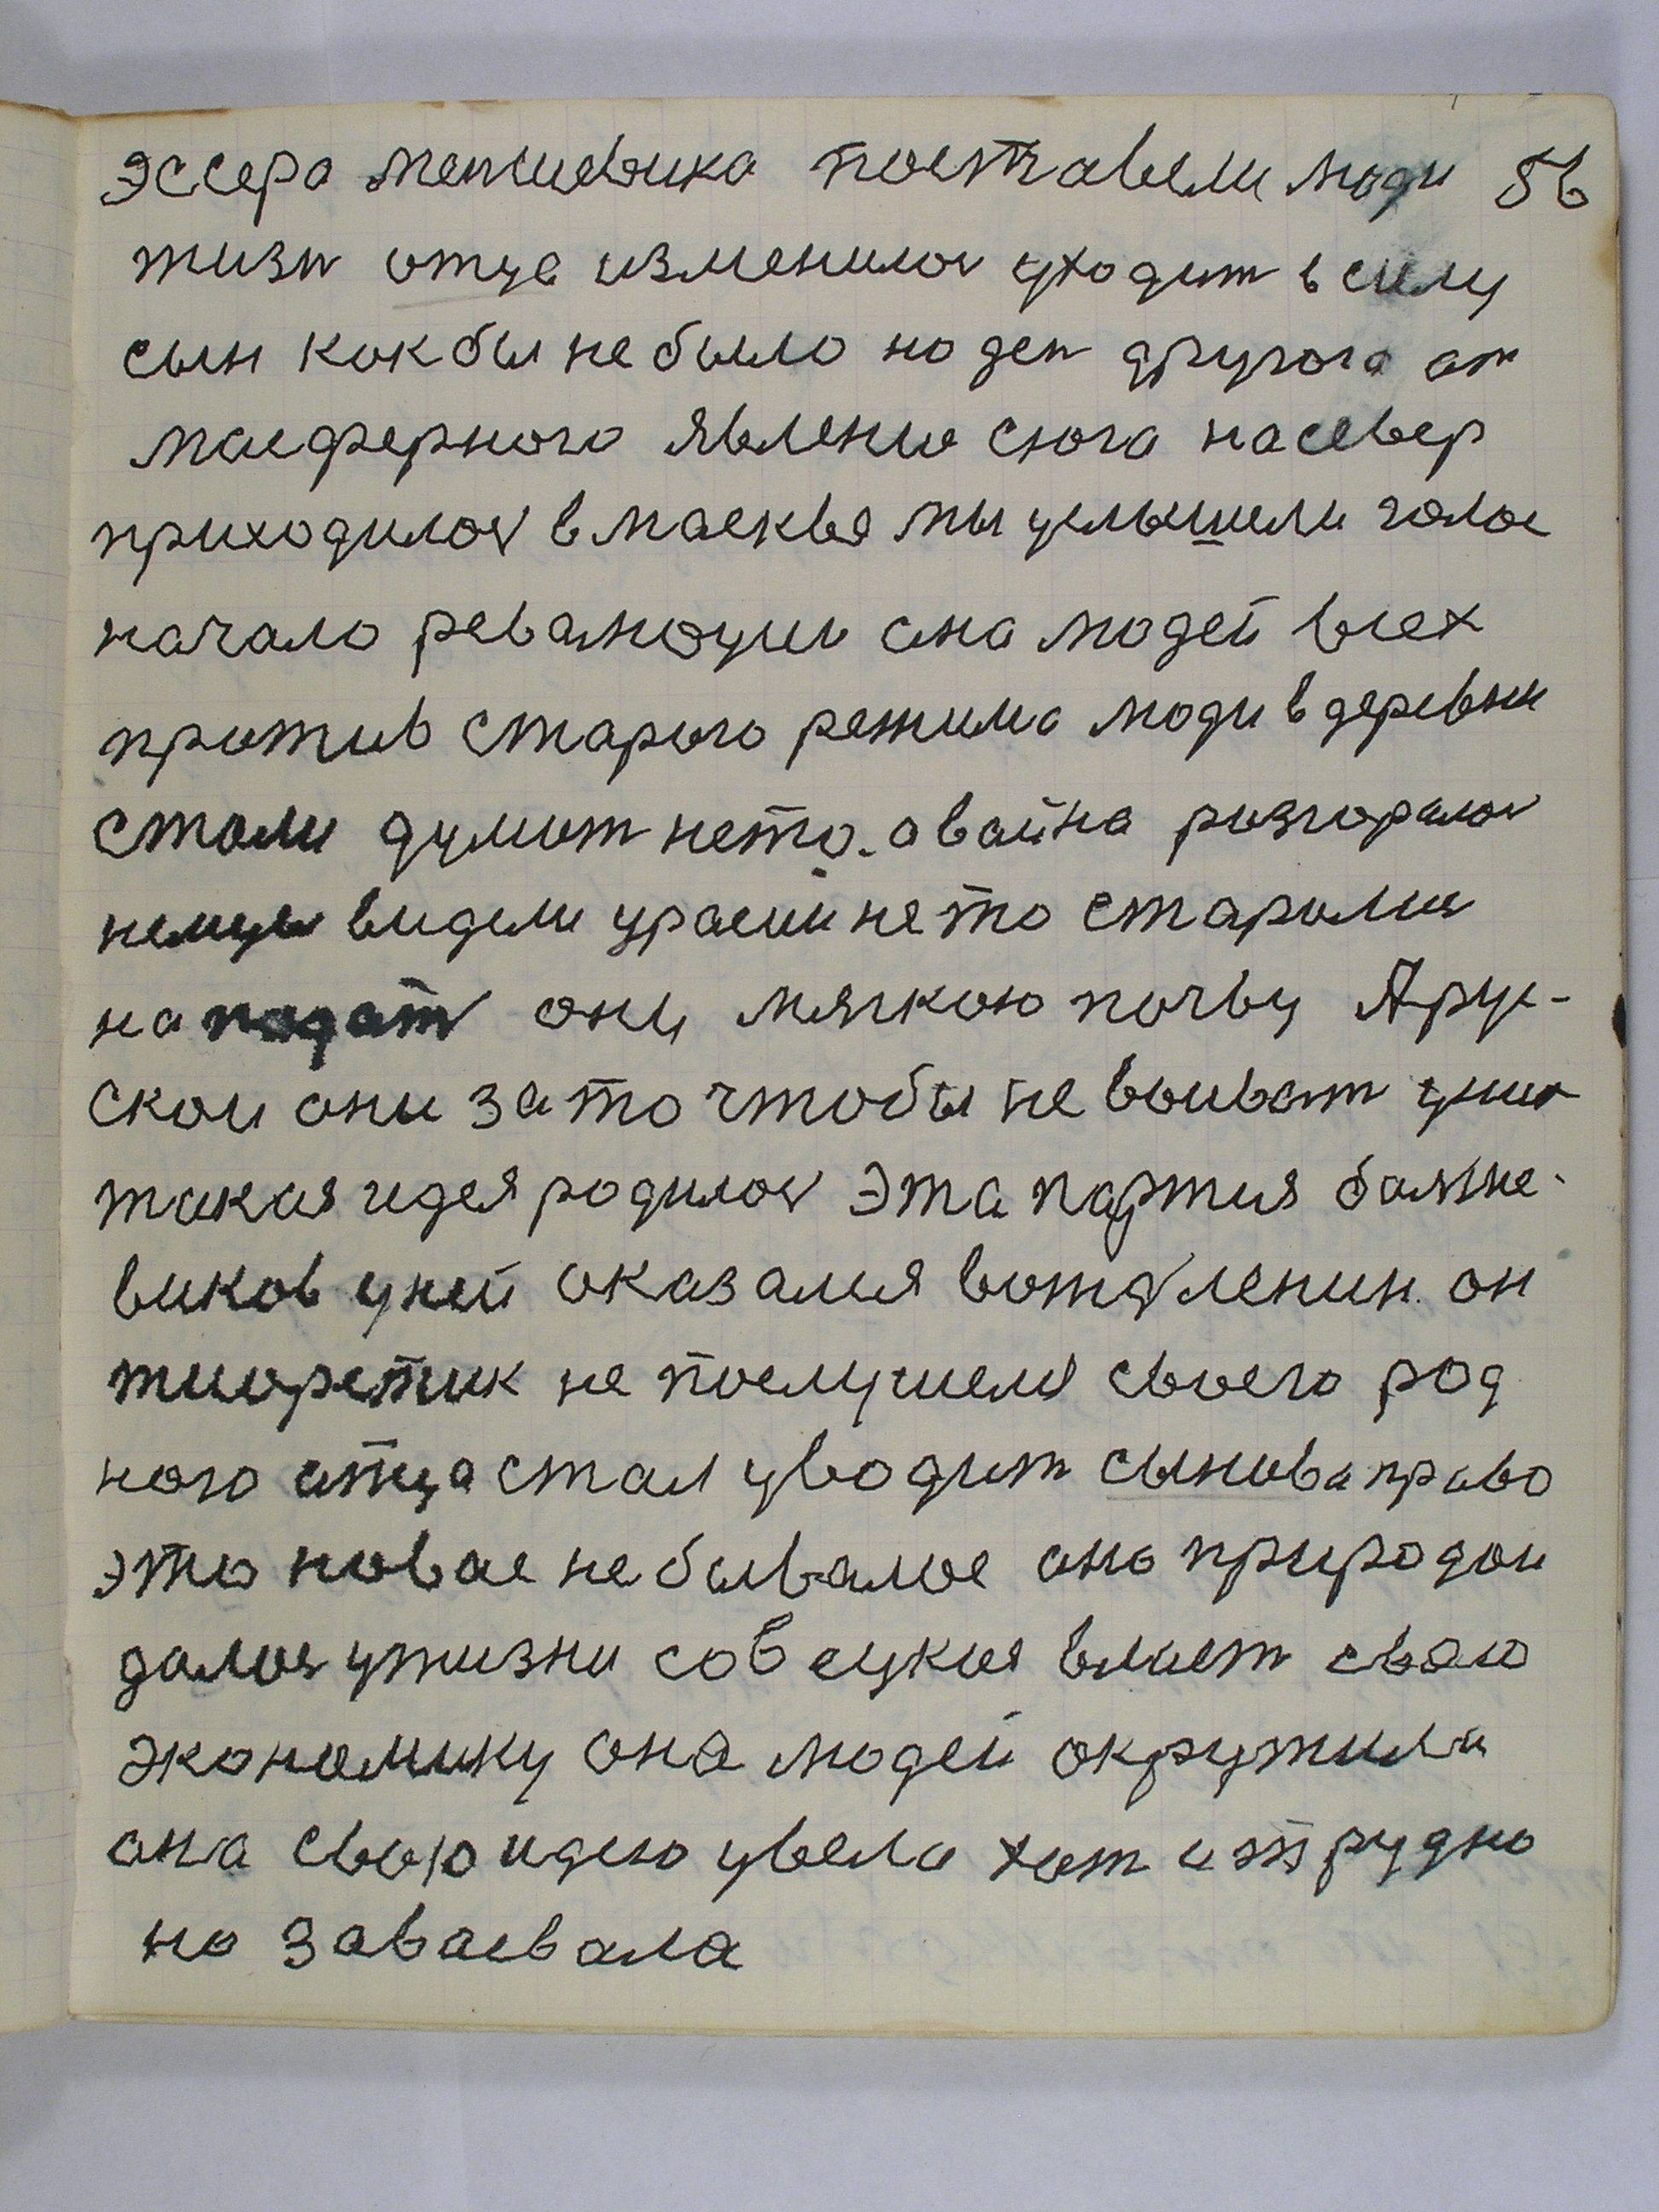 эссера меншевика поставели люди 56
жизн отца изменилос уходит в силу
сын как бы не было но ден другога ат
масферного явление сюга на север
приходилос в маскве мы услышели голос
начало революции она людей всех
против старого режима люди в деревни
стали думат не то. а война розгоралос
немцы видели урасии не то старались
на подат они мягкою почву А рус-
скои они за то чтобы не воиват
такая идея родилос эта партия балше-
виков у ней оказался вождь ленин. он
тиоретик не послушелся своего род
ного отца стал уводит сынова право
это новае не бывалое оно природои
далос у жизни совецкия власт сваю
экономику она людей окружила
она сваю идею увела хот и трудно
но заваевала